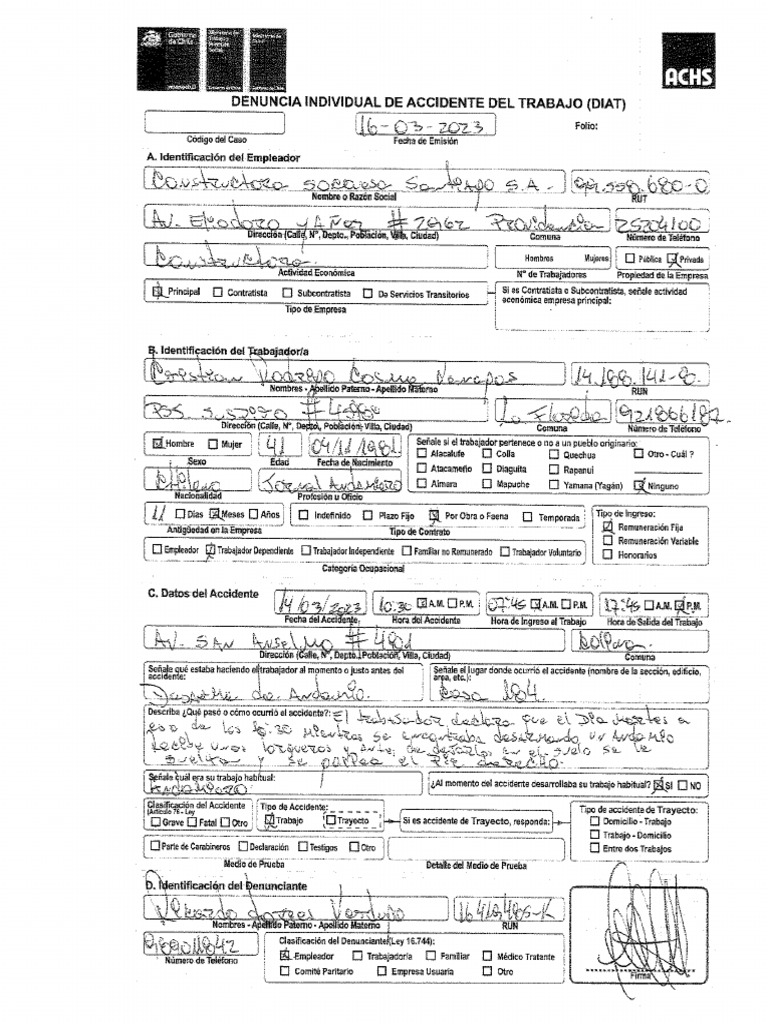 Gobierno de Chile
ACHS
DENUNCIA INDIVIDUAL DE ACCIDENTE DEL TRABAJO (DIAT)
16-03-2023 Folio:
Código del Caso Fecha de Emisión
A. Identificación del Empleador
Constructora Socovesa Santiago S.A.-
Nombre o Razón Social RUT
Av. Eliodoro yAñez # 2962 Providencia 25204100
Dirección (Calle, Nº, Depto., Población, Villa, Ciudad) Comuna Número de Teléfono
Constructora. Hombres Mujeres Pública Privada
Actividad Económica Nº de Trabajadores Propiedad de la Empresa
Principal Contratista Subcontratista De Servicios Transitorios Si es Contratista o Subcontratista, señale actividad
económica empresa principal:
Tipo de Empresa
B. Identificación del Trabajador/a
Cosme 14.188.141-8.
Nombres - Apellido Paterno - Apellido Materno RUN
La Florida
Dirección (Calle, Nº, Depto., Población, Villa, Ciudad) Comuna Número de Teléfono
Hombre Mujer 41 04/11/1981 Señale si el trabajador pertenece o no a un pueblo originario:
Sexo Edad Fecha de Nacimiento Alacalufe Colla Quechua Otro - Cuál ?
Atacameño Diaguita Rapanui
Chileno Jornal Andamiero Aimara Mapuche Yamana (Yagán) Ninguno
Nacionalidad Profesión u Oficio
11 Días Meses Años Indefinido Plazo Fijo Por Obra o Faena Temporada Tipo de Ingreso:
Antigüedad en la Empresa Tipo de Contrato Remuneración Fija
Empleador Trabajador Dependiente Trabajador Independiente Familiar no Remunerado Trabajador Voluntario Remuneración Variable
Honorarios
Categoría Ocupacional
C. Datos del Accidente 14/03/2023 10:30 A.M. P.M. 07:45 A.M. P.M. 17:45 A.M. P.M.
Fecha del Accidente Hora del Accidente Hora de Ingreso al Trabajo Hora de Salida del Trabajo
Av. San Anselmo # 481 Colina
Dirección (Calle, Nº, Depto., Población, Villa, Ciudad) Comuna
Señale qué estaba haciendo el trabajador al momento o justo antes del
accidente:
Señale el lugar donde ocurrió el accidente (nombre de la sección, edificio,
área, etc.):
Desarme de Andamio. Casa 184
Describa ¿Qué pasó o cómo ocurrió el accidente?: El trabajador declara que el Dia Martes a
eso de las 10:30 mientras se encontraba desarmando un Andamio
recibe unos largueros y antes de dejarlos en el suelo se le
sueltan y se golpea el Pie derecho.
Señale cuál era su trabajo habitual:
Andamiero ¿Al momento del accidente desarrollaba su trabajo habitual? SI NO
Clasificación del Accidente Tipo de Accidente: Tipo de accidente de Trayecto:
(Artículo 76 - Ley
Grave Fatal Otro Trabajo Trayecto Si es accidente de Trayecto, responda: Domicilio - Trabajo
Trabajo - Domicilio
Parte de Carabineros Declaración Testigos Otro Entre dos Trabajos
Medio de Prueba Detalle del Medio de Prueba
D. Identificación del Denunciante
Nombres - Apellido Paterno - Apellido Materno RUN
Clasificación del Denunciante(Ley 16.744):
Número de Teléfono Empleador Trabajador/a Familiar Médico Tratante
Comité Paritario Empresa Usuaria Otro
Firma